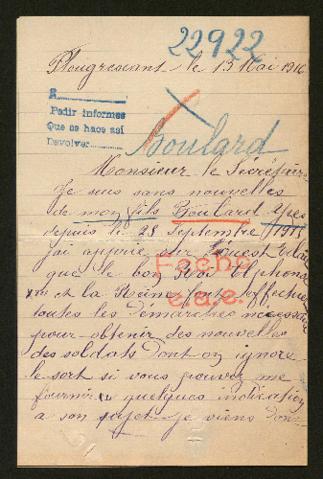 22922
Plougrescant le 15 Mai 1916
R
Pedir informes
Que se hace así
Devolver
Boulard
Monsieur le Sécrétaire
Je suis sans nouvelles
de mon fils Boulard Yves
depuis le 28 Septembre 1915
j'ai appris sur Ouest Eclair
que le bon Roi Alphonse
XIII et la Reine font effectuer
toutes les démarches nécessaire
pour obtenir des nouvelles
des soldats dont on ignore
le sort si vous pouvez me
fournir quelques indication
à son sujet je viens donc
Fecho